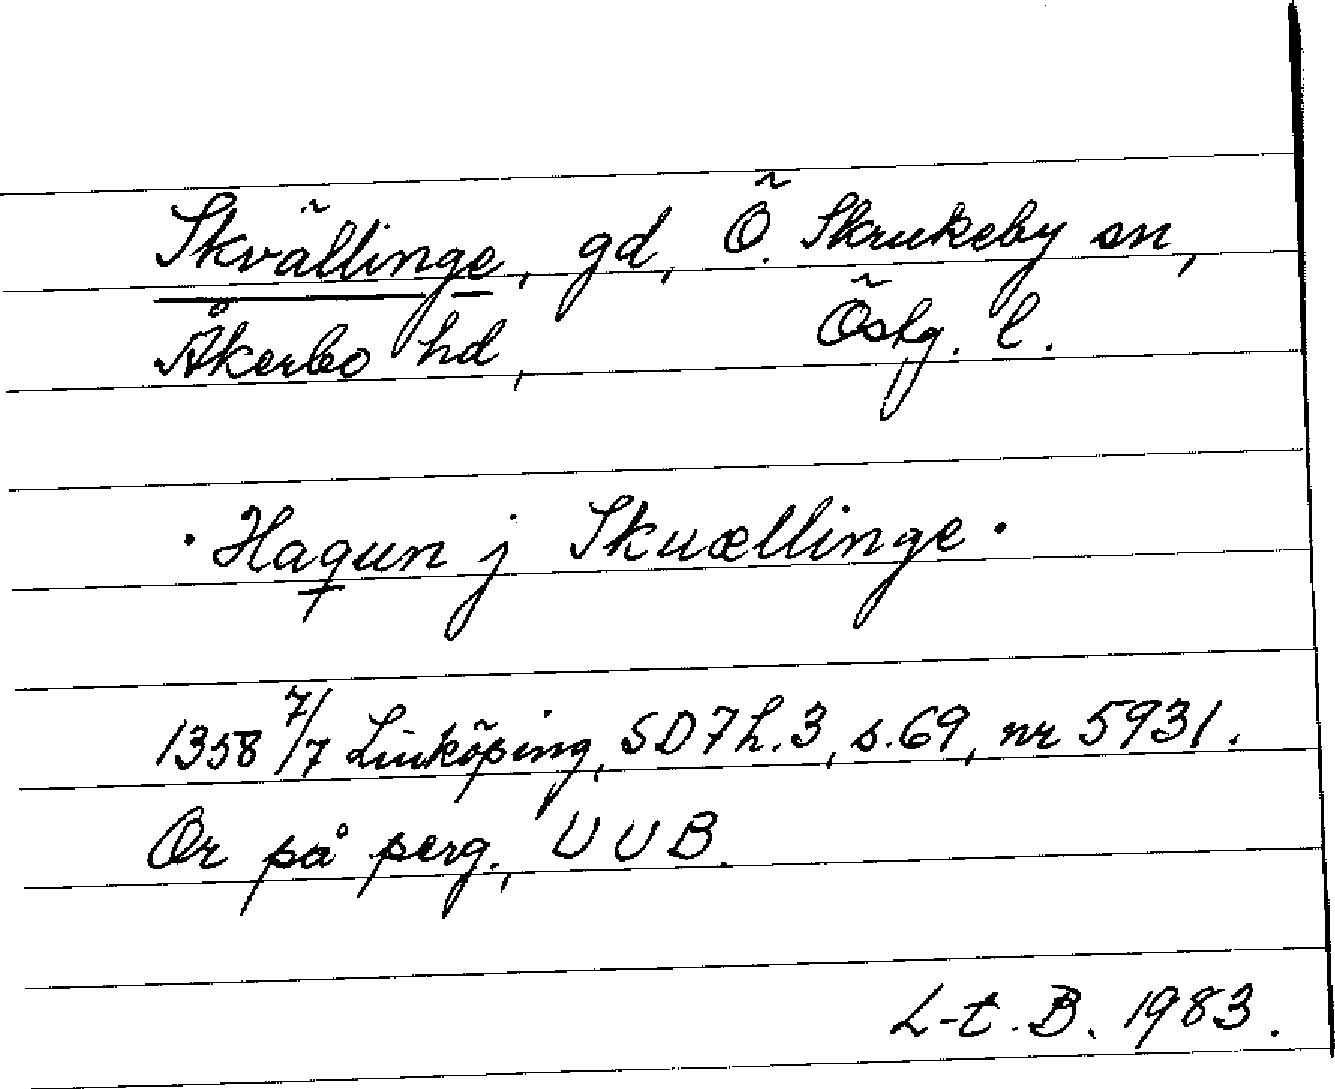 Skvällinge, gd, Ö. Skrukeby sn,
Åkerbo hd, Östg. l.
· Haqun j Skuællinge ·
1358 7/7 Linköping, SD7h.3, s.69, nr 5931.
Or på perg., UUB.
L-t. B. 1983.